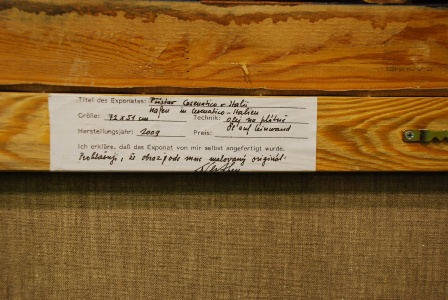 Titel des Exponates: Přístav Cesenatico v Itálii
Hafen in Cesenatico - Italien
Größe: 72 x 51 cm Technik: olej na plátně
Öl auf Leinwand
Herstellungsjahr: 2009 Preis:
Ich erkläre, daß das Exponat von mir selbst angefertigt wurde.
Prohlašuji, že obraz je ode mne malovaný originál.